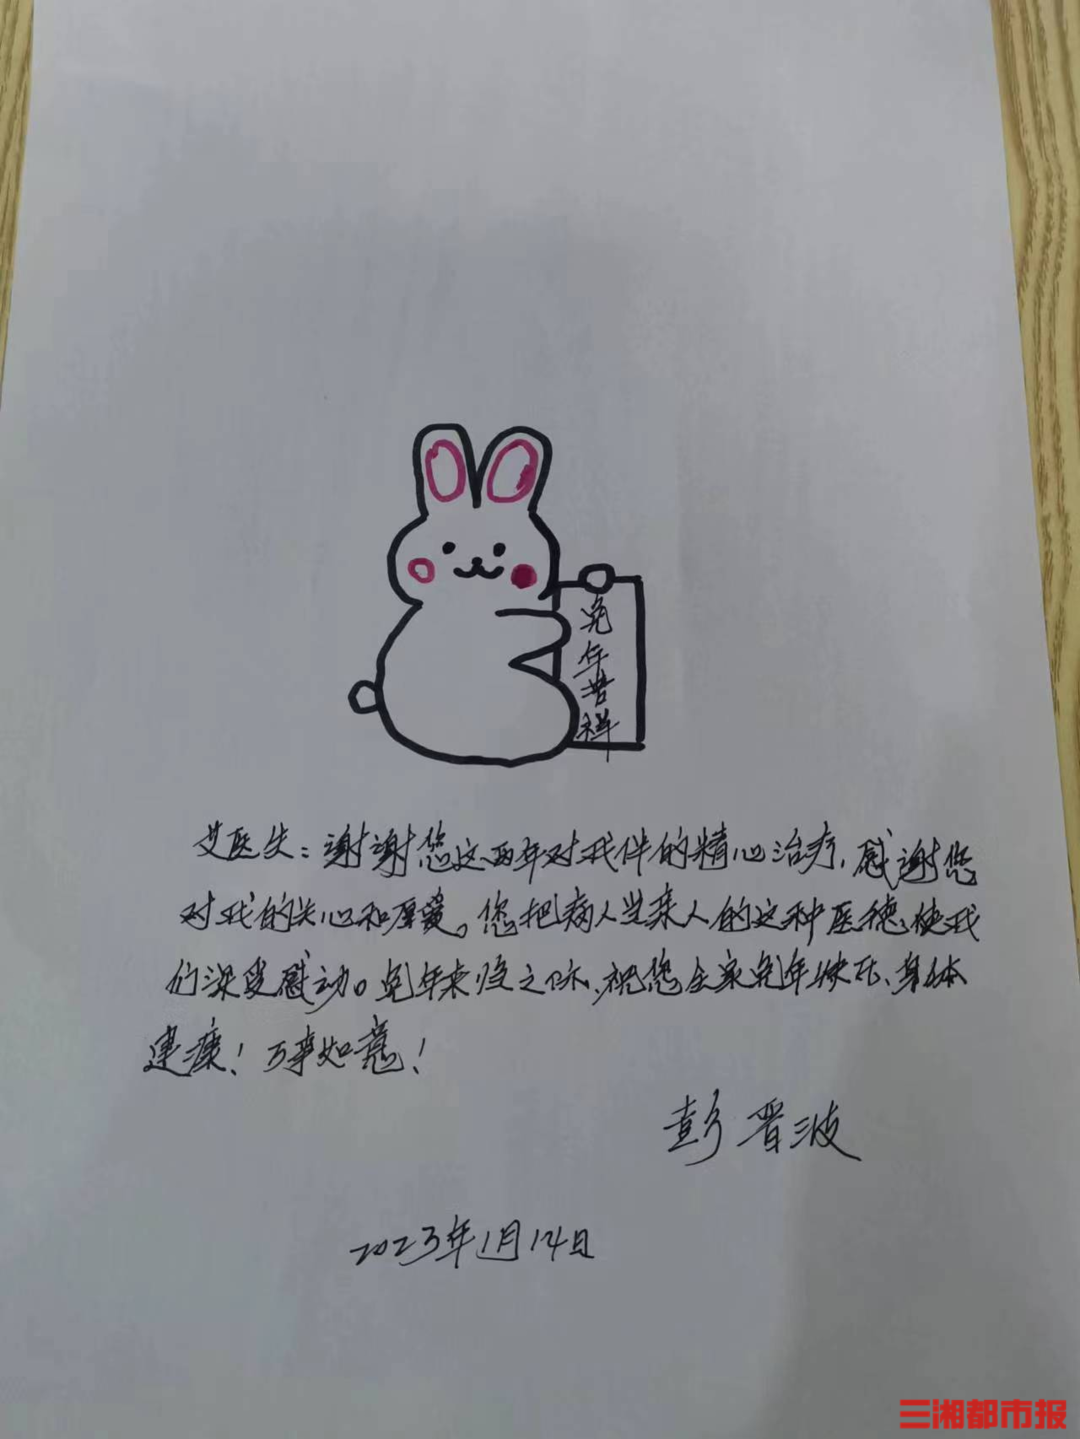 兔年吉祥
艾医生：谢谢您这两年对我伴的精心治疗，感谢您
对我的关心和厚爱。您把病人当亲人的这种医德，使我
们深受感动。兔年来临之际，祝您全家兔年快乐、身体
健康！万事如意！
彭晋波
2023年1月14日
三湘都市报